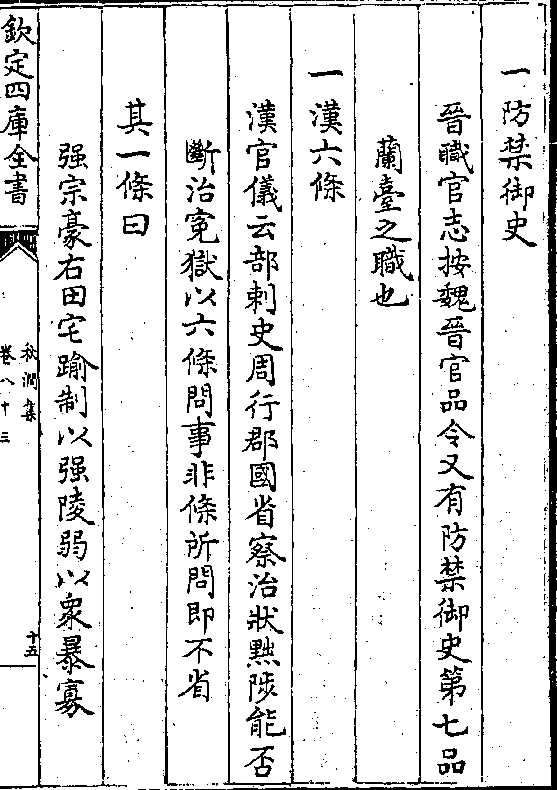 一防禁御史
晉職官志按魏晉官品令又有防禁御史第七品
蘭臺之職也
一漢六條
漢官儀云部刺史周行郡國省察治狀黜陟能否
斷治寃獄以六條問事非條所問即不省
其一條曰
强宗豪右田宅踰制以强陵弱以衆暴寡
欽定四庫全書
秋澗集
卷八十三
十五